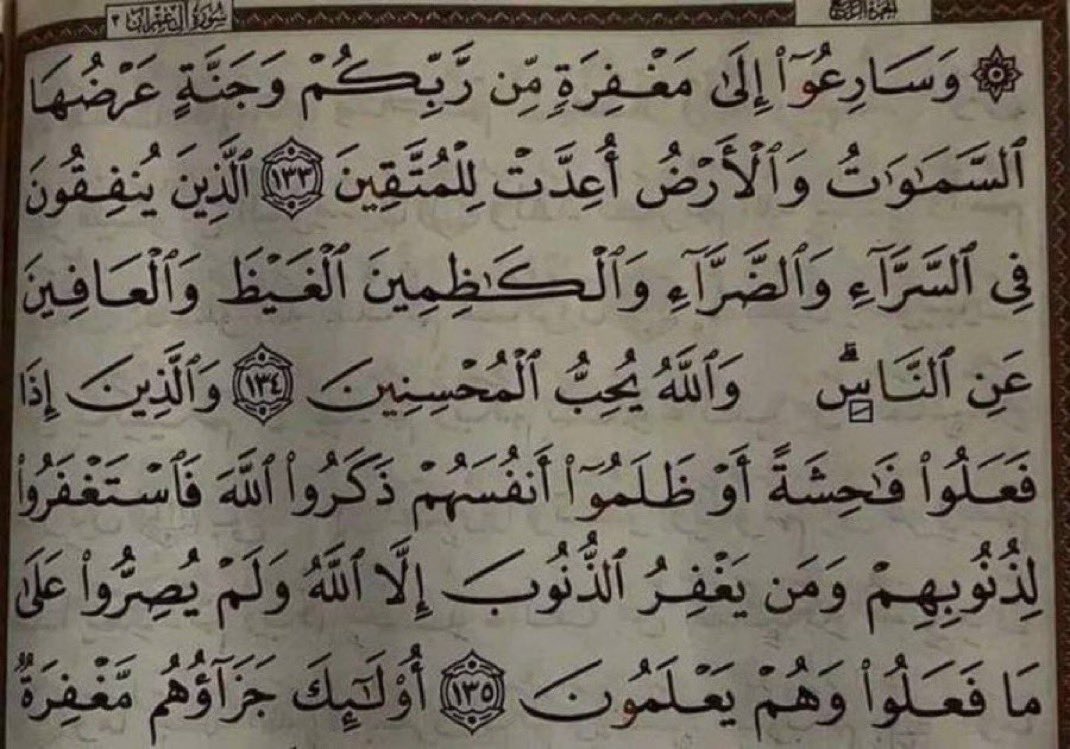 الجزء الرابع سُورَةُ آلِ عِمْرَانَ ٣
۞ وَسَارِعُوٓا۟ إِلَىٰ مَغْفِرَةٍ مِّن رَّبِّكُمْ وَجَنَّةٍ عَرْضُهَا
ٱلسَّمَٰوَٰتُ وَٱلْأَرْضُ أُعِدَّتْ لِلْمُتَّقِينَ ١٣٣ ٱلَّذِينَ يُنفِقُونَ
فِى ٱلسَّرَّآءِ وَٱلضَّرَّآءِ وَٱلْكَٰظِمِينَ ٱلْغَيْظَ وَٱلْعَافِينَ
عَنِ ٱلنَّاسِۗ وَٱللَّهُ يُحِبُّ ٱلْمُحْسِنِينَ ١٣٤ وَٱلَّذِينَ إِذَا
فَعَلُوا۟ فَٰحِشَةً أَوْ ظَلَمُوٓا۟ أَنفُسَهُمْ ذَكَرُوا۟ ٱللَّهَ فَٱسْتَغْفَرُوا۟
لِذُنُوبِهِمْ وَمَن يَغْفِرُ ٱلذُّنُوبَ إِلَّا ٱللَّهُ وَلَمْ يُصِرُّوا۟ عَلَىٰ
مَا فَعَلُوا۟ وَهُمْ يَعْلَمُونَ ١٣٥ أُو۟لَٰٓئِكَ جَزَآؤُهُم مَّغْفِرَةٌ